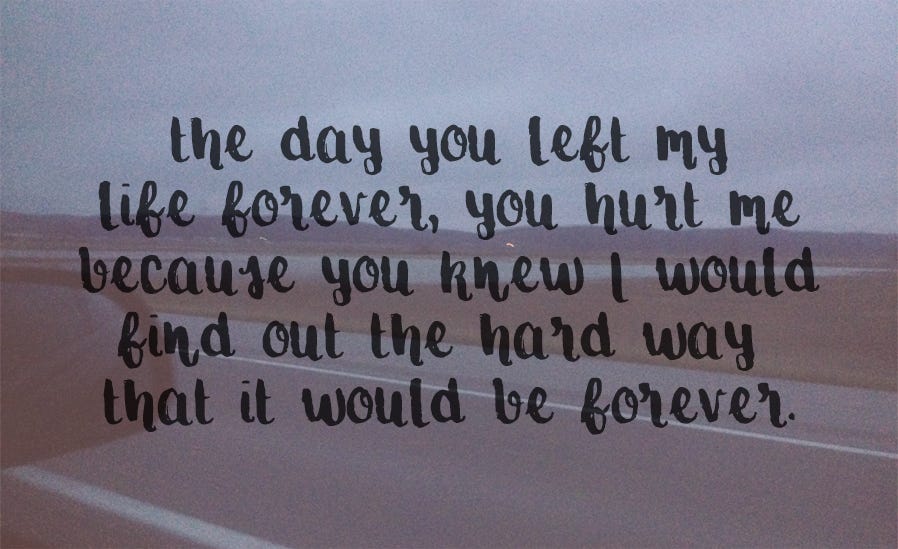 the day you left my
life forever, you hurt me
because you knew I would
find out the hard way
that it would be forever.